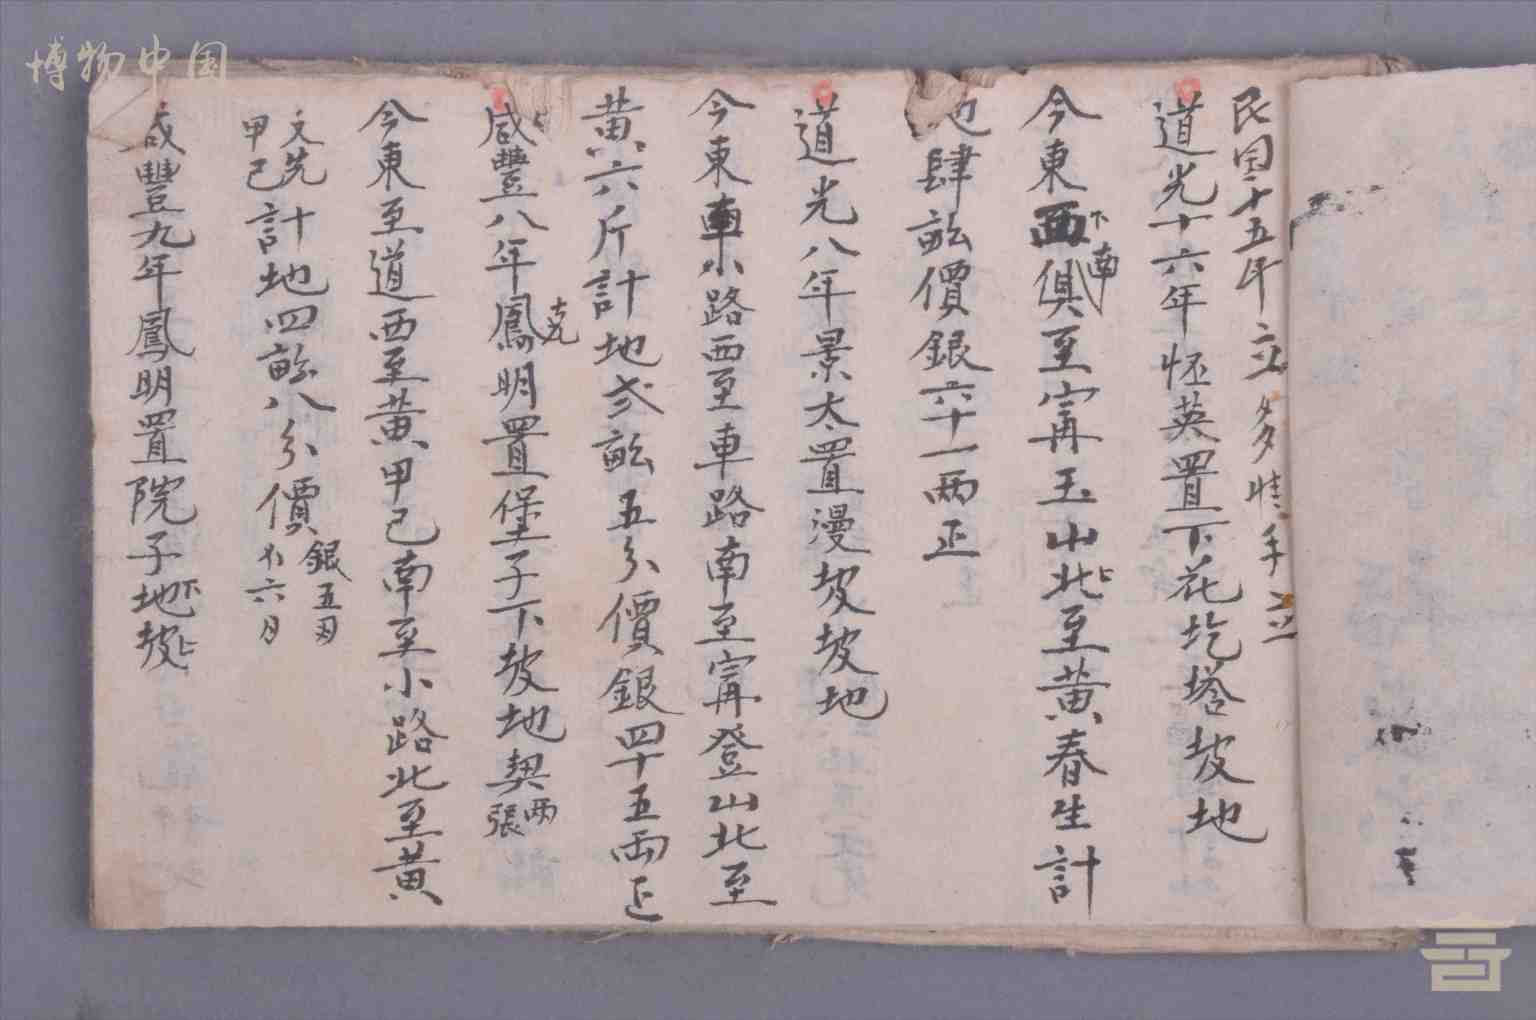 博物中国
民国十五年立
道光十六年怀英置下花圪塔坡地
今東西下南俱至甯玉山北至黄春生計
地肆畝價銀六十一两正
道光八年景太置漫坡坡地
今東車小路西至車路南至甯登山北至
黄六斤計地弍畝五分價銀四十五両正
咸豐八年鳳明置堡子下坡地契两張
今東至道西至黄甲己南至小路北至黄
文先
甲己計地四畝八分價銀五
六
咸豐九年鳳明置院子地坡